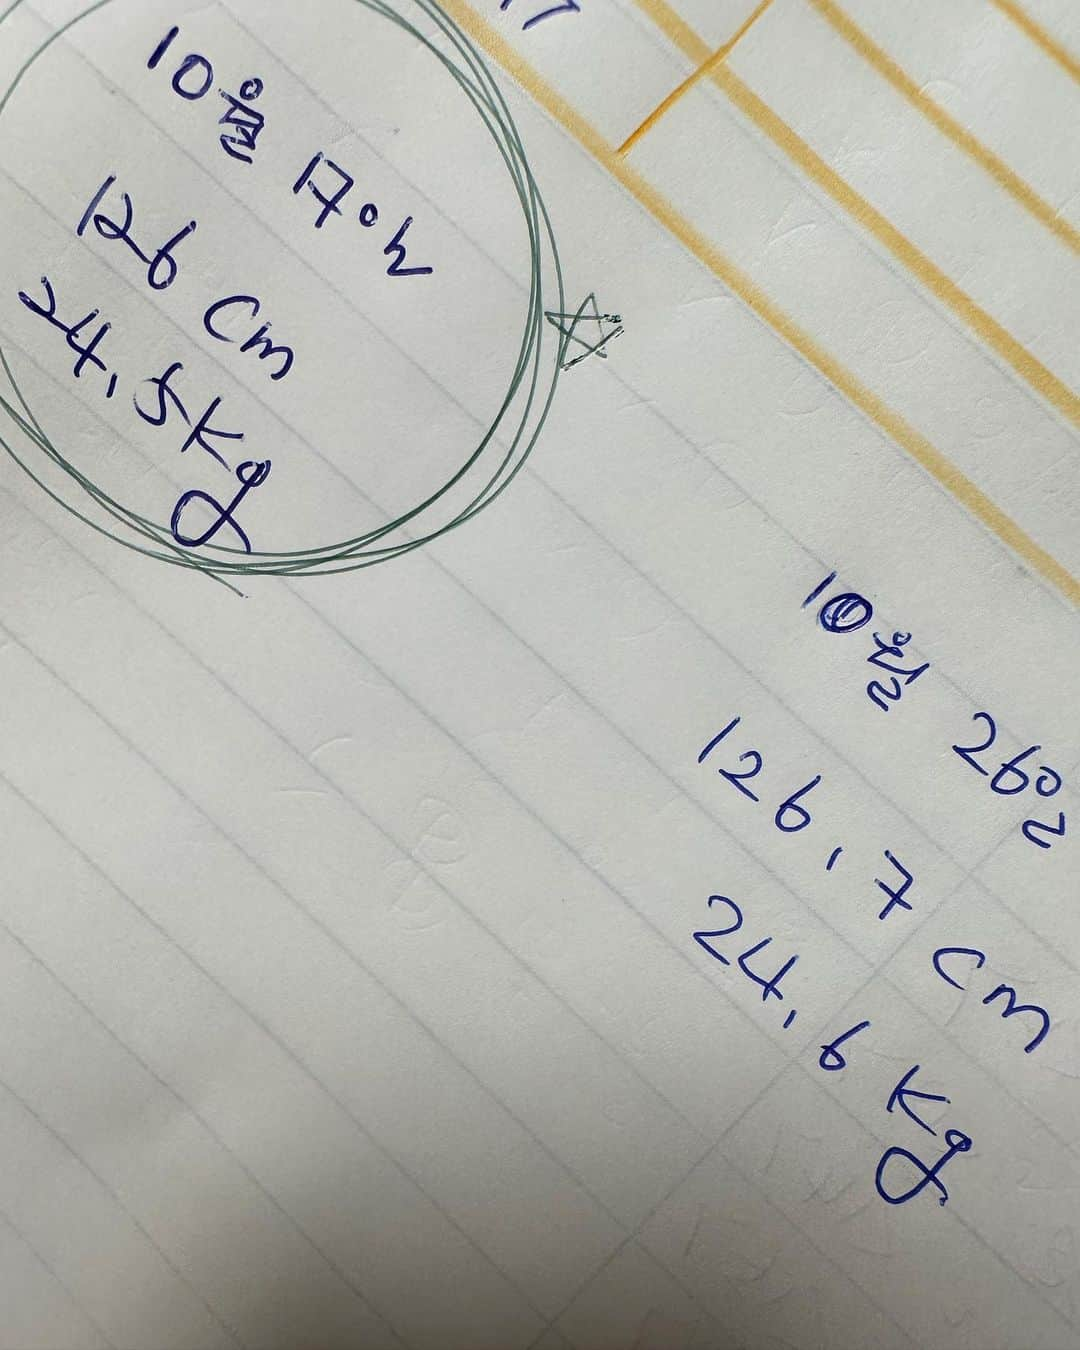 10월 17일
126 cm
24.5kg
10월 26일
126.7 cm
24.6 kg